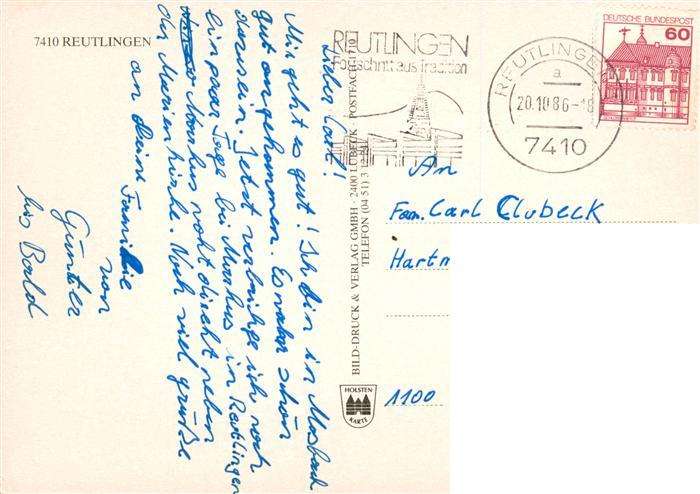 7410 REUTLINGEN
Lieber Carl!
Mir geht es gut! Ich bin in Mosbach
gut angekommen. Es war schön
daheim. Jetzt verbringe ich noch
ein paar Tage bei Markus in Reutlingen
Markus wohnt direkt neben
der Marienkirche. Noch viel grüße
an deine Familie
von
Günter
bis Bald
BILD-DRUCK & VERLAG GMBH · 2400 LÜBECK · POSTFACH 1710
TELEFON (04 51) 3
HOLSTEN
KARTE
REUTLINGEN
Fortschritt aus Tradition
REUTLINGEN
a
20.10.86-18
7410
DEUTSCHE BUNDESPOST
60
An
Fam. Carl Clubeck
Hartm
1100